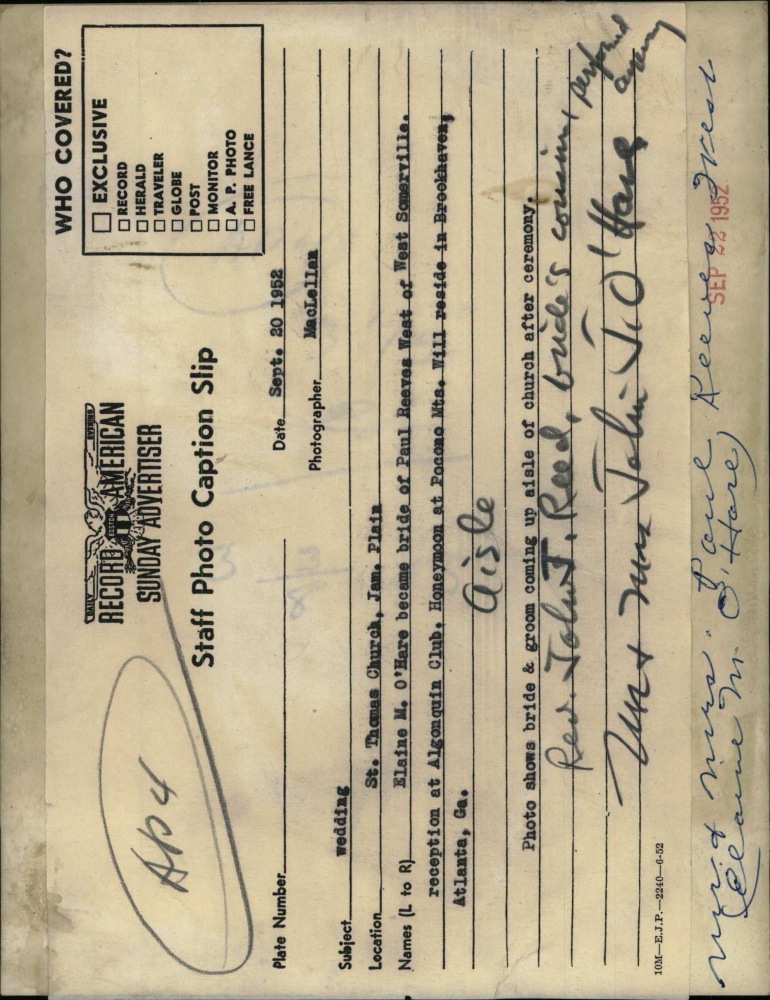 DAILY
EVENING
RECORD AMERICAN
SUNDAY ADVERTISER
Staff Photo Caption Slip
WHO COVERED?
EXCLUSIVE
RECORD
HERALD
TRAVELER
GLOBE
POST
MONITOR
A. P. PHOTO
FREE LANCE
Plate Number
Date Sept. 20 1952
Subject wedding
Photographer MacLellan
Location St. Thomas Church, Jam. Plain
Names (L to R) Elaine M. O'Hare became bride of Paul Reeves West of West Somerville.
reception at Algonquin Club. Honeymoon at Pocono Mts. Will reside in Brookhaven,
Atlanta, Ga.
Aisle
Photo shows bride & groom coming up aisle of church after ceremony.
Rev. John J. Reed, bride's cousin, performed
Mr & Mrs John J. O'Hare
10M—E.J.P.—2240—6-52
Mr. & Mrs. Paul Reeves West
(Elaine M. O'Hare)
SEP 22 1952